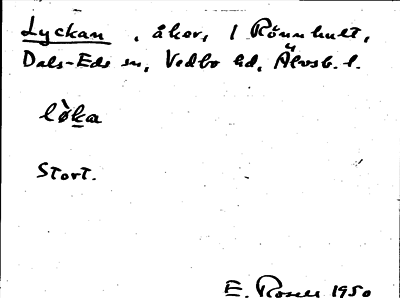 Lyckan, åker, 1 Rönnhult,
Dals-Eds sn, Vedbo hd, Älvsb. l.
lø̀ka
Stort.
E. 1950